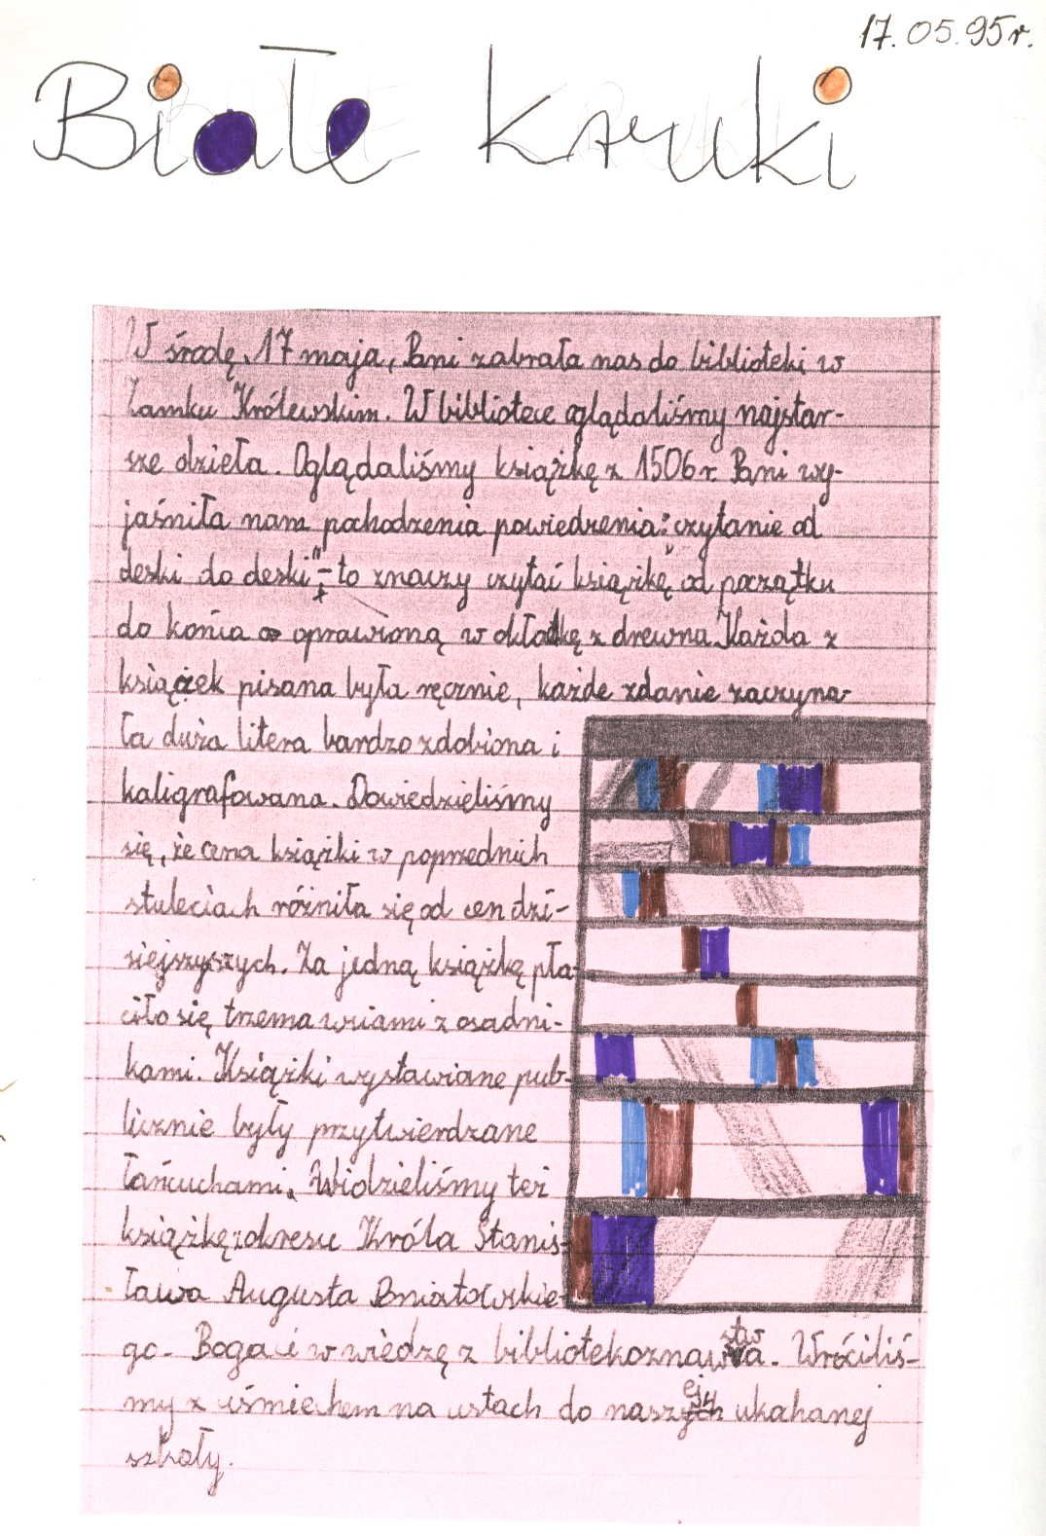 17.05.95r.
Białe kruki
W środę, 17 maja, Pani zabrała nas do biblioteki w
Zamku Królewskim. W bibliotece oglądaliśmy najstar-
sze dzieła. Oglądaliśmy książkę z 1506 r. Pani wy-
jaśniła nam pochodzenia powiedzenia: czytanie od
deski do deski" - to znaczy czytać książkę od początku
do końca oprawioną w okładkę z drewna. Każda z
książek pisana była ręcznie, każde zdanie zaczyna-
ła duża litera bardzo zdobiona i
kaligrafowana. Dowiedzieliśmy
się, że cena książki w poprzednich
stuleciach różniła się od cen dzi-
siejszyszych. Za jedną książkę pła-
ciło się trzema wsiami z osadni-
kami. Książki wystawiane pub-
licznie były przytwierdzane
łańcuchami. Widzieliśmy też
książkę z okresu Króla Stanis-
ława Augusta Poniatowskie-
go. Bogaci w wiedzę z bibliotekoznawstwa. Wróciliś-
my z uśmiechem na ustach do naszej ukahanej
szkoły.